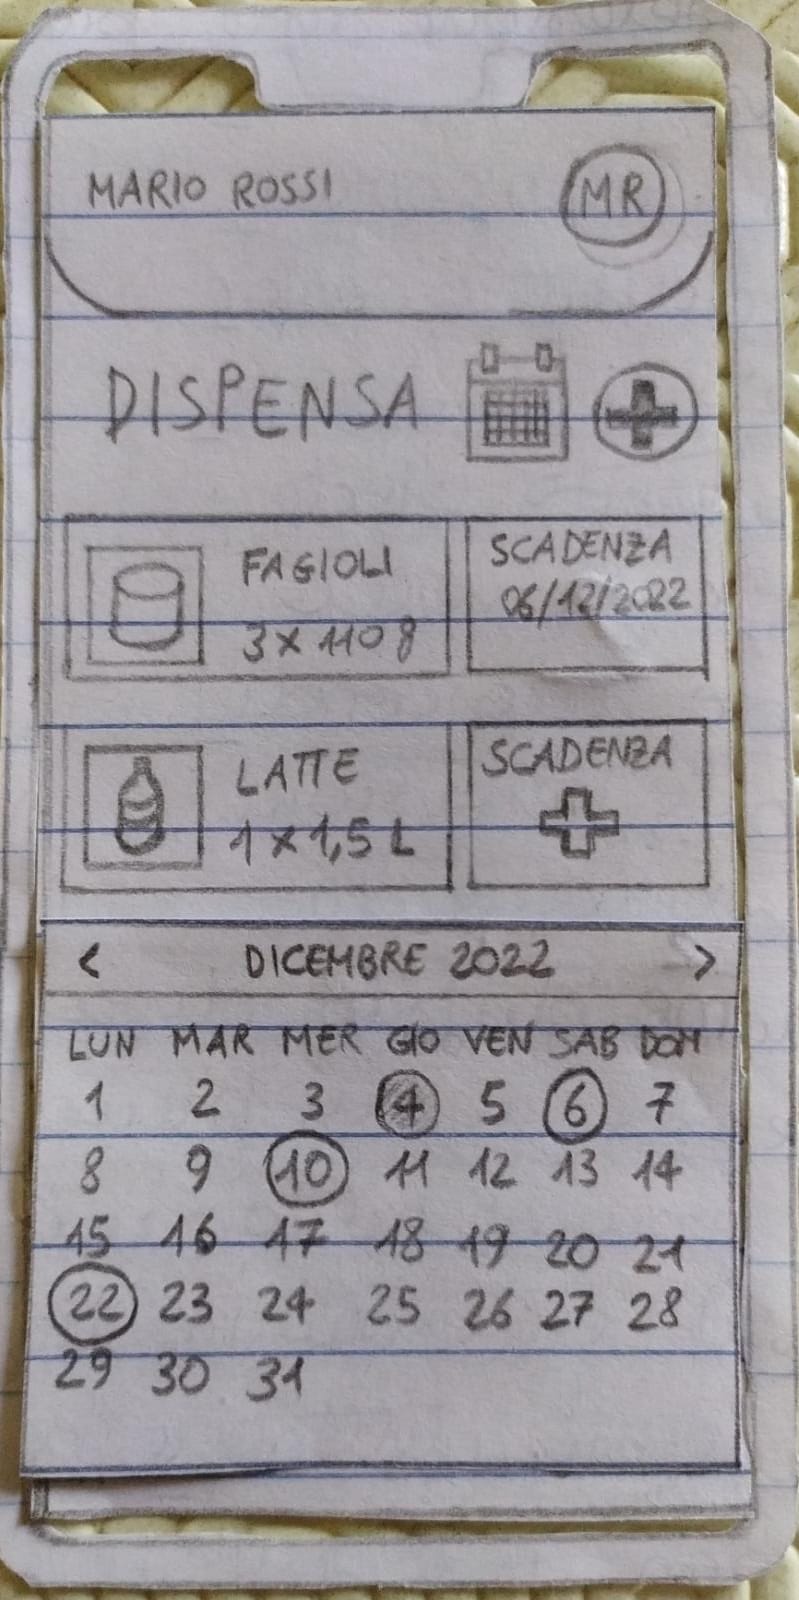 MARIO ROSSI MR
DISPENSA
FAGIOLI
3 x 110 g
SCADENZA
06/12/2022
LATTE
1 x 1,5 L
SCADENZA
< DICEMBRE 2022 >
LUN MAR MER GIO VEN SAB DOM
1 2 3 4 5 6 7
8 9 10 11 12 13 14
15 16 17 18 19 20 21
22 23 24 25 26 27 28
29 30 31